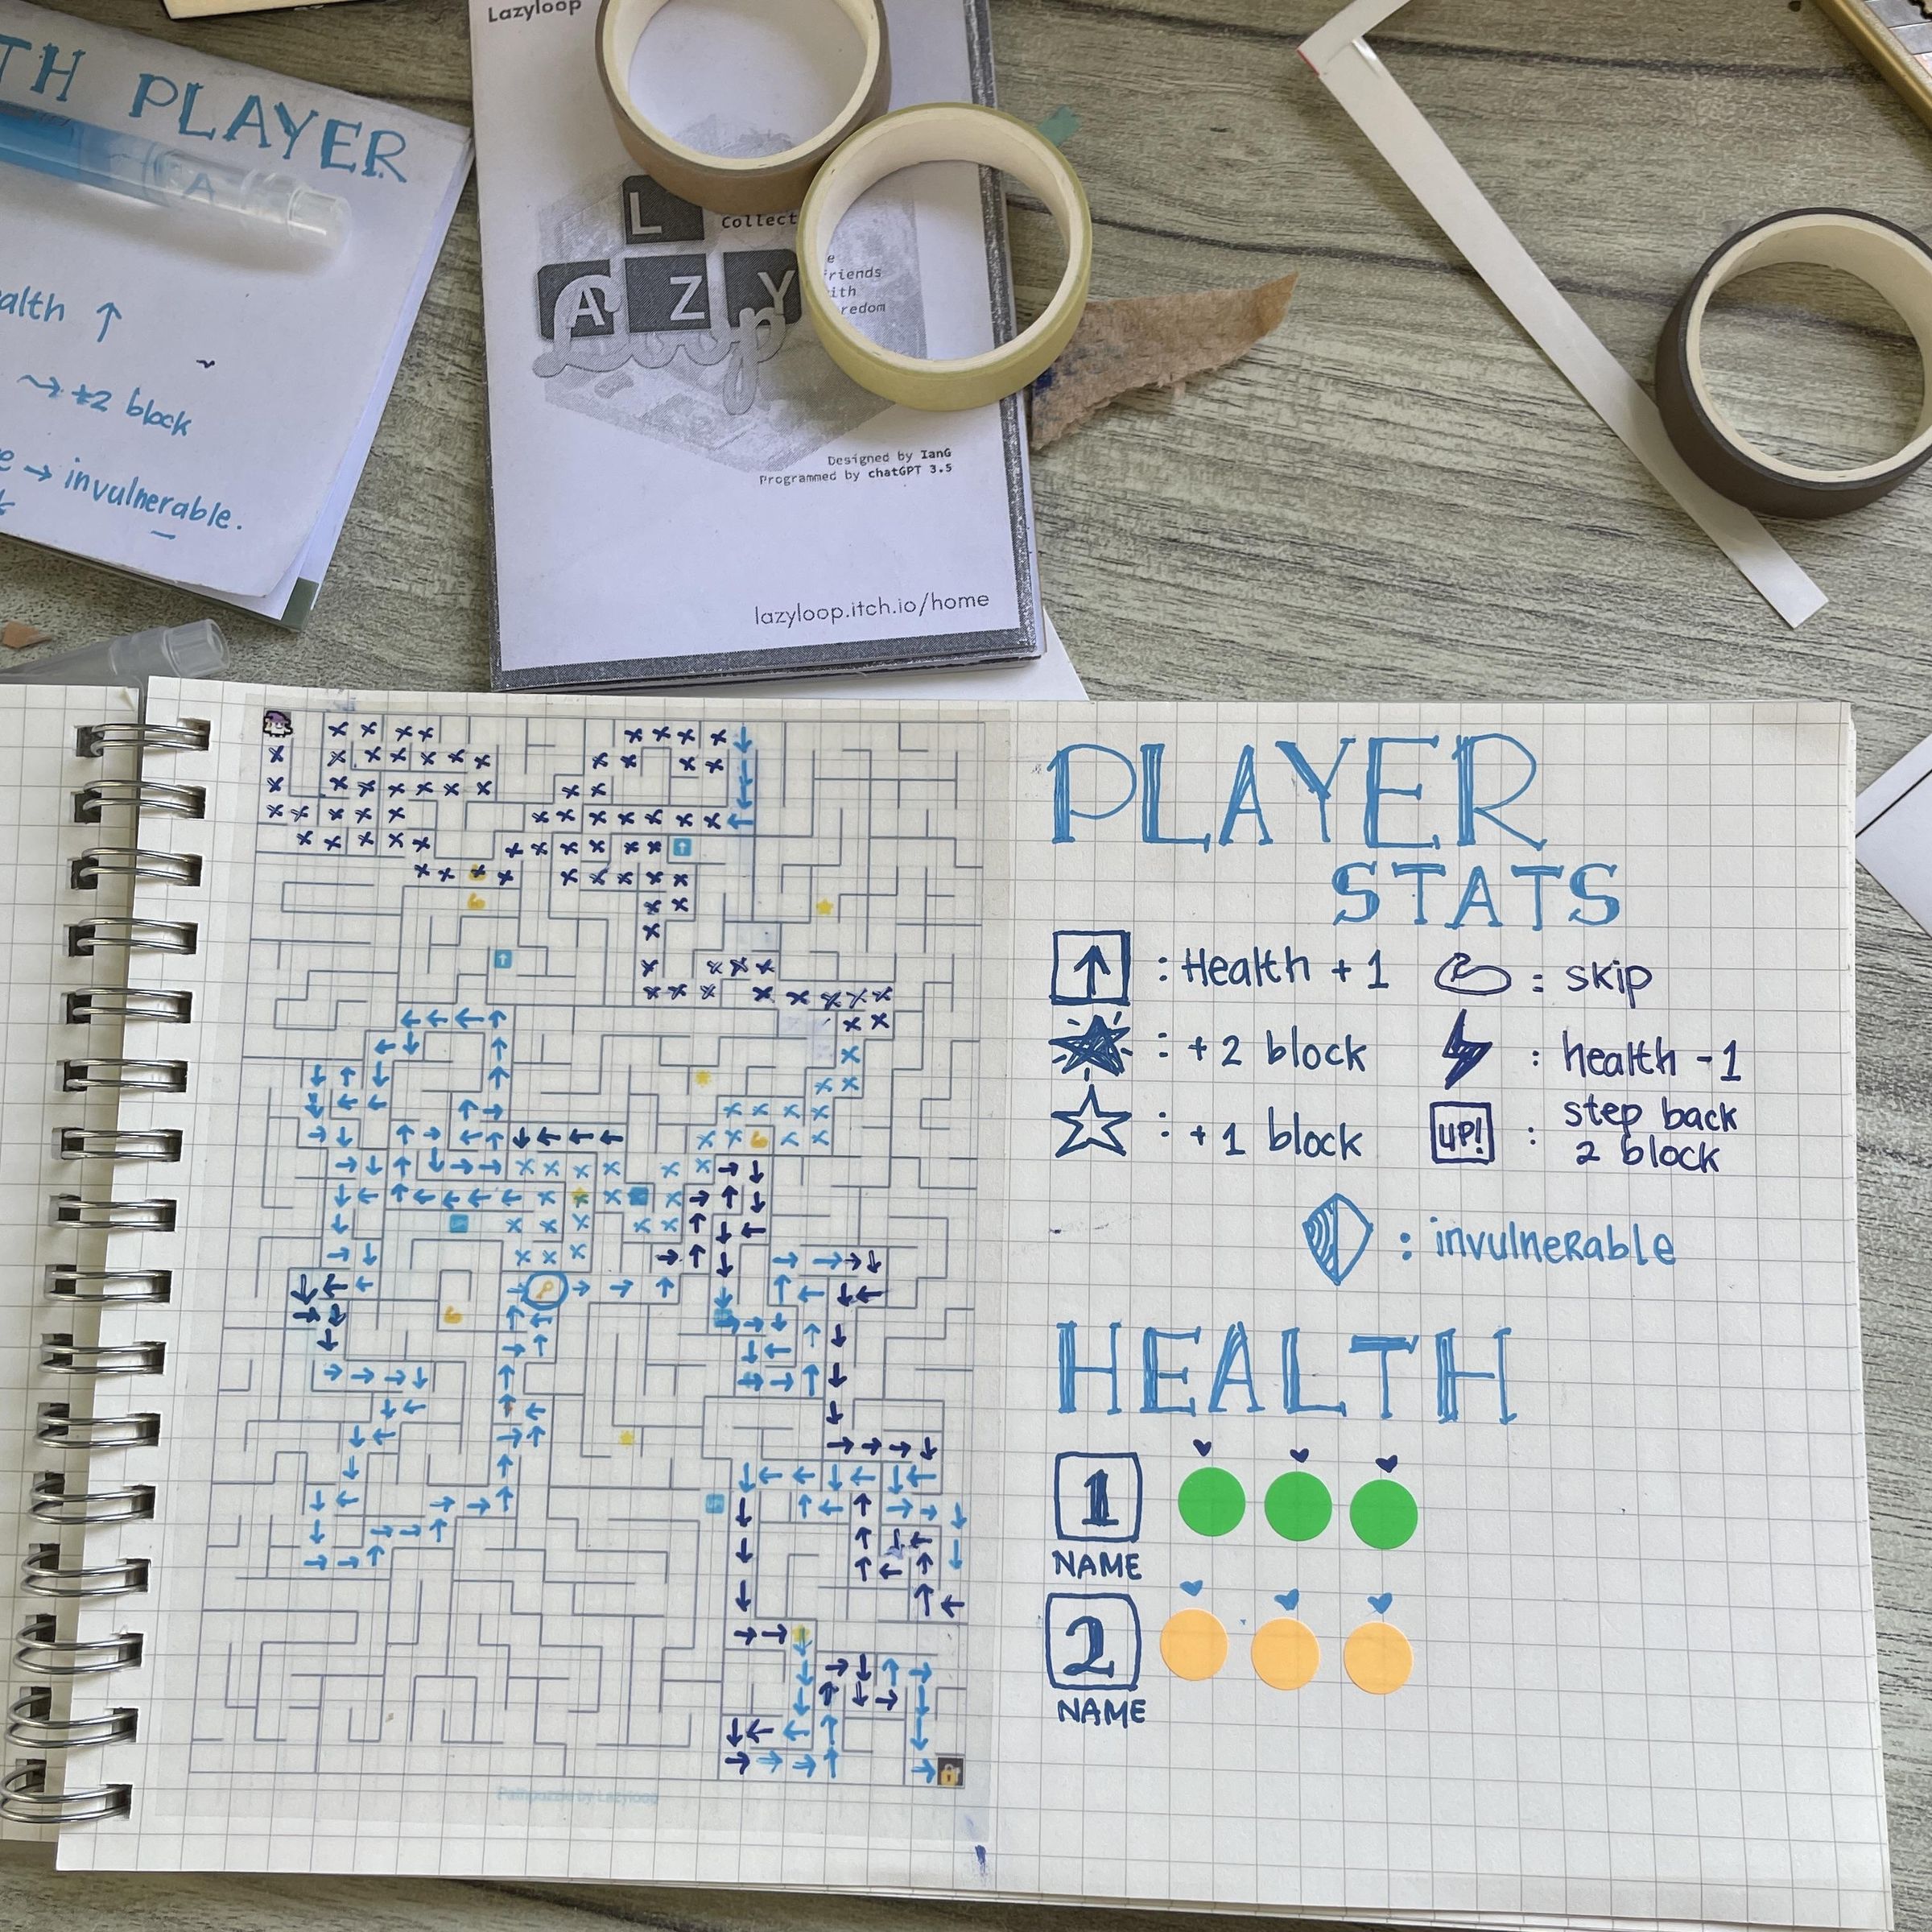 Lazyloop
TH PLAYER
alth ↑
→ +2 block
e → invulnerable.
L
Collect
A Z Y
Loop
e
riends
ith
redom
Designed by IanG
Programmed by chatGPT 3.5
lazyloop.itch.io/home
PLAYER
STATS
↑ : Health + 1
: skip
: + 2 block
: health -1
: + 1 block
UP! : step back
2 block
: invulnerable
HEALTH
1
NAME
2
NAME
Pathpuzzle by Lazyloop